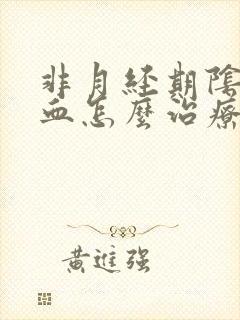 非月經期陰
血怎麼治療
黃進强